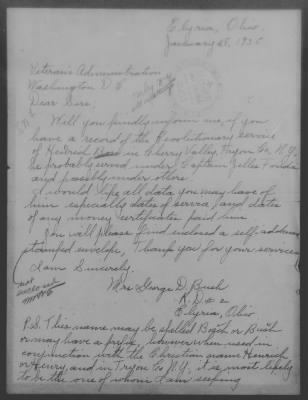 Elyria, Ohio
January 28, 1935
Veterans Administration
Washington D.C.
Dear Sirs,
Will you kindly inform me, if you
have a record of the Revolutionary service
of Hendrick in Cherry Valley, Tryon Co, N.Y.
he probably served under Captain Jelles Fonda
and possibly under others.
I would like all data you may have of
him especially dates of service, and dates
of any money certificates paid him
You will please find enclosed a self-addressed
stamped envelope, I thank you for your services
I am Sincerely,
Mrs George D. Bush
R.D. # 2
Elyria, Ohio
P.S. This name may be spelled or Bush
or may have a prefix, however when used in
conjunction with the Christian name Henrich
or Henry, and in Tryon Co N.Y., it is most likely
to be the one of whom I am seeking